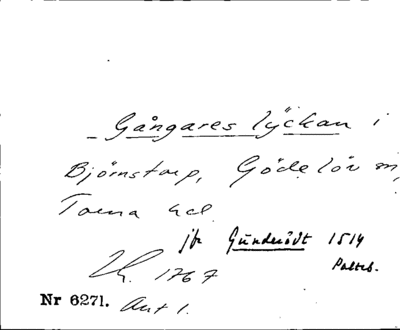 Gångares lyckan i
Björnstorp, Gödelöv m,
Torna hd
jfr Gunderödt 1514
Palteb.
1767
Nr 6271. Akt 1.